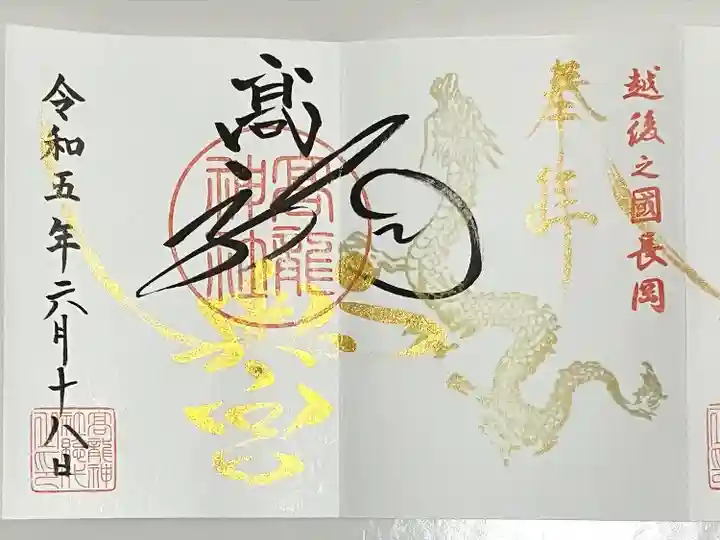 越後之國長岡
奉拝
髙龍
高龍
神社
令和五年六月十八日
高龍神